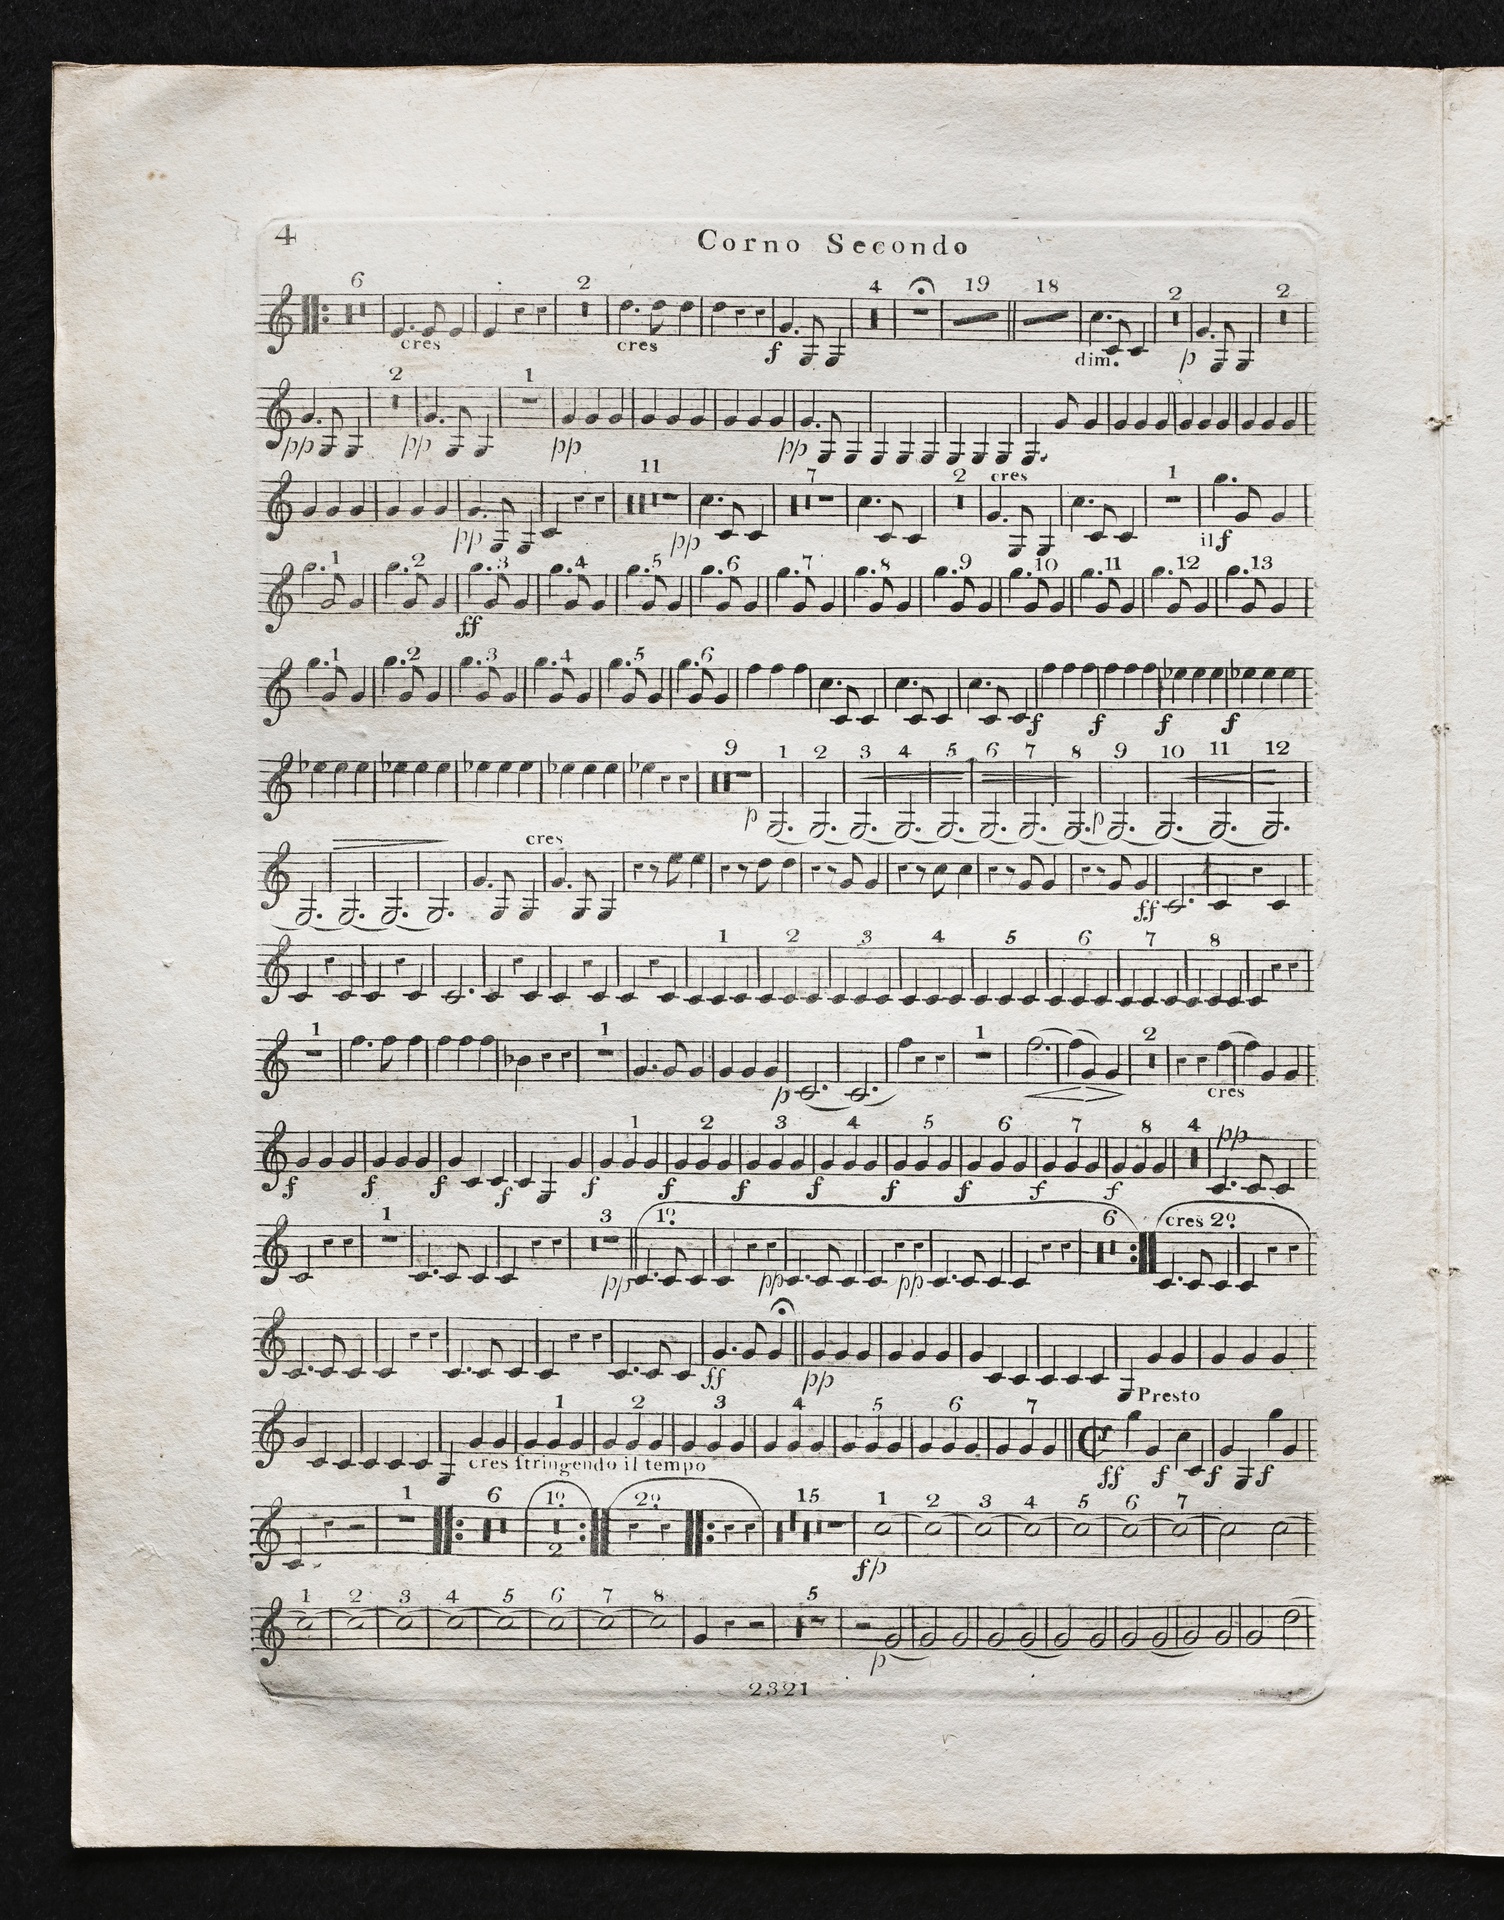 4
Corno Secondo
6 2 4 19 18 2 2
cres cres f dim. p
2 1
pp pp pp pp
11 7 2 cres 1
pp pp il f
1 2 3 4 5 6 7 8 9 10 11 12 13
ff
1 2 3 4 5 6
f f f f
9 1 2 3 4 5 6 7 8 9 10 11 12
p p
cres
ff
1 2 3 4 5 6 7 8
1 1 1 2
p cres
1 2 3 4 5 6 7 8 4 pp
f f f f f f f f f f f f
1 3 1º 6 cres 2º
pp pp pp
ff pp
Presto
1 2 3 4 5 6 7
cres ſtringendo il tempo ff f f f
1 6 1º 2º 15 1 2 3 4 5 6 7
2
fp
1 2 3 4 5 6 7 8 5
p
2321